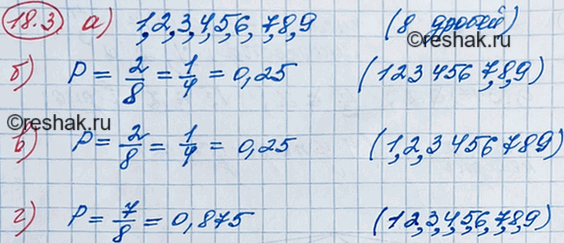 18.3 а) 1,2,3,4,5,6,7,8,9 (8 дробей)
©reshak.ru
б) P = 2/8 = 1/4 = 0,25 (123456 7,8,9)
©reshak.ru
в) P = 2/8 = 1/4 = 0,25 (1,2,3456789)
©reshak.ru
г) P = 7/8 = 0,875 (12,3,4,5,6,7,8,9)
©reshak.ru